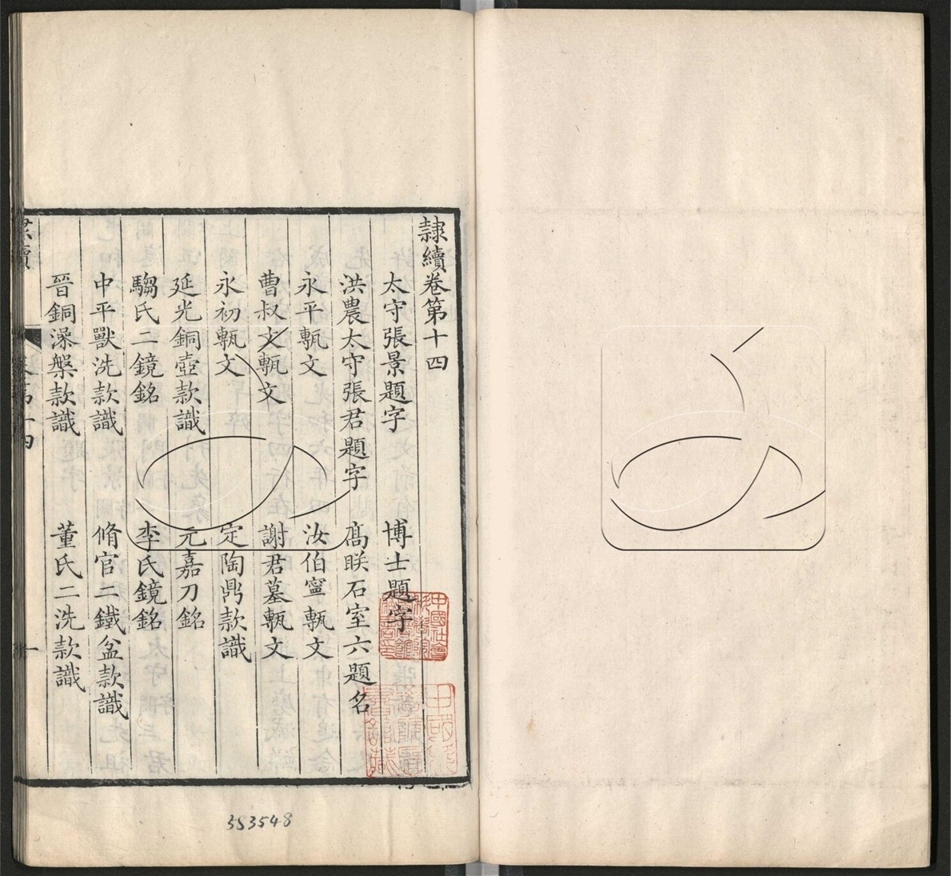 隷續卷第十四
太守張景題字　博士題字
洪農太守張君題字　高眹石室六題名
永平甎文　汝伯寧甎文
曹叔文甎文　謝君墓甎文
永初甎文　定陶鼎款識
延光銅壺款識　元嘉刀銘
騶氏二鏡銘　李氏鏡銘
中平獸洗款識　脩官二鐵盆款識
晉銅澡槃款識　董氏二洗款識
353548